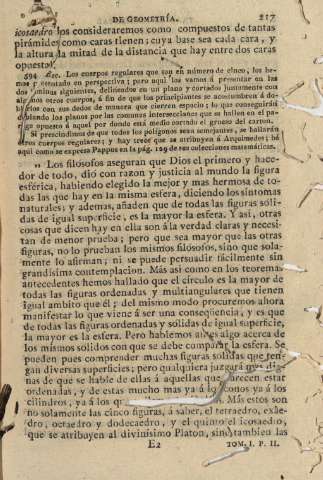 DE GEOMETRÍA. 217
icosaedro los consideraremos como compuestos de tantas
pirámides como caras tienen; cuya base sea cada cara, y
la altura la mitad de la distancia que hay entre dos caras
opuestas.
594 Esc. Los cuerpos regulares que son en número de cinco, los he-
mos presentado en perspectiva; pero aquí los vamos á presentar en las
dos láminas siguientes, definiendo en un plano y cortados juntamente con
algunos otros cuerpos, á fin de que los principiantes se acostumbren á do-
blarlos con sus dedos de manera que cierren espacio; lo que conseguirán
doblando los planos por las comunes intersecciones que se hallen en el pa-
ge opuesto á aquel por donde está medio cortado el grueso del carton.
Si prescindimos de que todos los polígonos sean semejantes, se hallarán
otros cuerpos regulares; y hay trece que se atribuyen á Arquimedes; hé
aquí como se expresa Pappus en la pág. 129 de sus colecciones matemáticas.
„ Los filósofos aseguran que Dios el primero y hace-
dor de todo, dió con razon y justicia al mundo la figura
esférica, habiendo elegido la mejor y mas hermosa de to-
das las que hay en la misma esfera, diciendo los síntomas
naturales; y ademas, añaden que de todas las figuras sóli-
das de igual superficie, es la mayor la esfera. Y así, otras
cosas que dicen hay en ella son á la verdad claras y necesi-
tan de menor prueba; pero que sea mayor que las otras
figuras, no lo prueban los mismos filósofos, sino que sola-
mente lo afirman; ni se puede persuadir fácilmente sin
grandísima contemplacion. Más así como en los teoremas
antecedentes hemos hallado que el círculo es la mayor de
todas las figuras ordenadas y multiangulares que tienen
igual ámbito que él; del mismo modo procuremos ahora
manifestar lo que viene á ser una consequëncia, y es que
de todas las figuras ordenadas y sólidas de igual superficie,
la mayor es la esfera. Pero hablemos antes algo acerca de
los mismos sólidos con que se debe comparar la esfera. Se
pueden pues comprender muchas figuras sólidas que ten-
gan diversas superficies; pero qualquiera juzgará mas dig-
nas de que se hable de ellas á aquellas que parecen estar
ordenadas, y de estas mucho mas que á los conos ya á los
cilindros, ya á los Más estos son
no solamente las cinco figuras, á saber, el tetraedro, exâe-
dro, octaedro y dodecaedro, y el quinto el icosaedro,
que se atribuyen al divinísimo Platon, sino tambien las
E2 TOM. I. P. II.